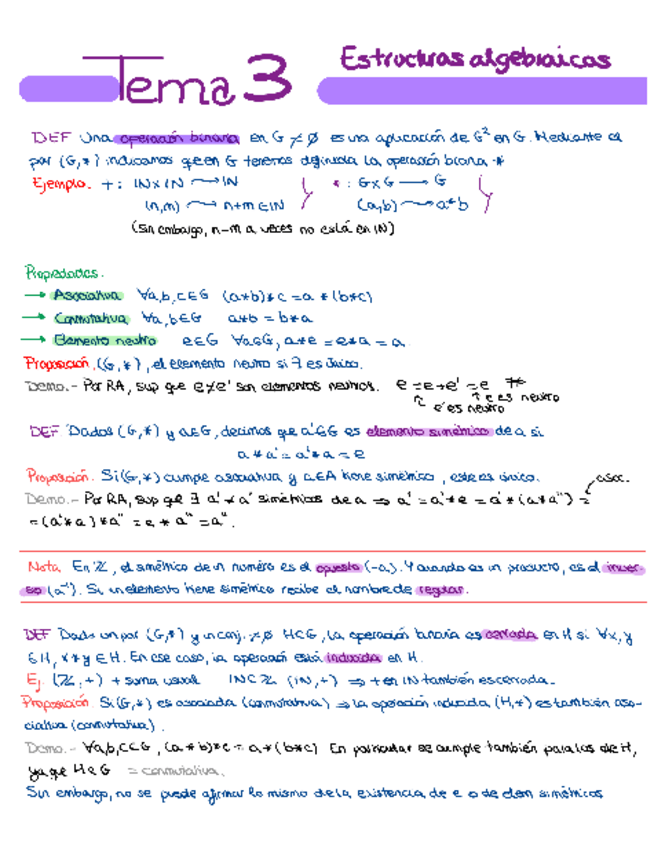 Tema 3 Estructuras algebraicas
DEF Una operación binaria en G ≠ ∅ es una aplicación de G² en G. Mediante el
par (G,*) indicamos que en G tenemos definida la operación binaria *
Ejemplo. + : ℕ×ℕ → ℕ * : G×G → G
(n,m) → n+m ∈ ℕ (a,b) → a*b
(Sin embargo, n-m a veces no está en ℕ)
Propiedades.
→ Asociativa ∀a,b,c∈G (a*b)*c = a*(b*c)
→ Conmutativa ∀a,b∈G a*b = b*a
→ Elemento neutro e∈G ∀a∈G, a*e = e*a = a
Proposición. (G,*), el elemento neutro si ∃ es único.
Demo.- Por RA, sup que e≠e' son elementos neutros. e = e*e' = e'
e' es neutro e es neutro
DEF Dados (G,*) y a∈G, decimos que a'∈G es elemento simétrico de a si
a*a' = a'*a = e
Proposición. Si (G,*) cumple asociativa y a∈A tiene simétrico, este es único.
asoc.
Demo.- Por RA, sup que ∃ a' ≠ a'' simétricos de a ⇒ a' = a'*e = a'*(a*a'') =
= (a'*a)*a'' = e*a'' = a''.
Nota. En ℤ, el simétrico de un numéro es el opuesto (-a). Y cuando es un producto, es el inver-
so (a⁻¹). Si un elemento tiene simétrico recibe el nombre de regular.
DEF Dado un par (G,*) y un conj. ≠∅ H⊂G, la operación binaria es cerrada en H si ∀x,y
∈H, x*y∈H. En ese caso, la operación está inducida en H.
Ej. (ℤ,+) + suma usual ℕ⊂ℤ (ℕ,+) ⇒ + en ℕ también es cerrada.
Proposición. Si (G,*) es asociada (conmutativa) ⇒ la operación inducida (H,*) es también aso-
ciativa (conmutativa).
Demo.- ∀a,b,c∈G, (a*b)*c = a*(b*c) En particular se cumple también para los de H,
ya que H⊂G = conmutativa.
Sin embargo, no se puede afirmar lo mismo de la existencia de e o de elem simétricos